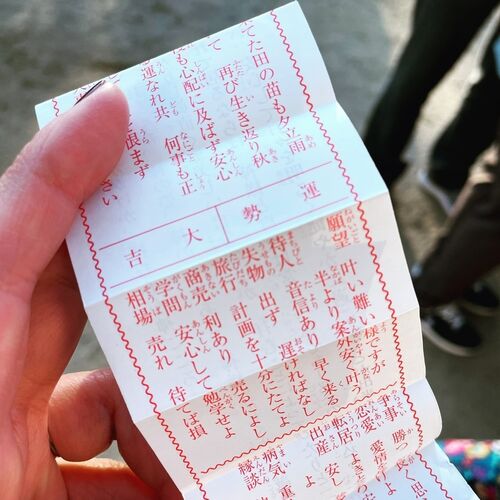 てた田の苗も夕立雨
て 再び生き返り秋
も心配に及ばず安心
運なれ共 何事も正
恨まず
さい
運勢
大吉
願望 叶い難い様ですが
半より案外安く叶う
待人 音信あり 早く来る
失物 出ず 遅ければなし
旅行 計画を十分にたてよ
商売 利あり 売るによし
学問 安心して勉学せよ
相場 売れ 待ては損
争事 勝つ
恋愛 愛情
転居 よき
出産 安し
病気 重
縁談